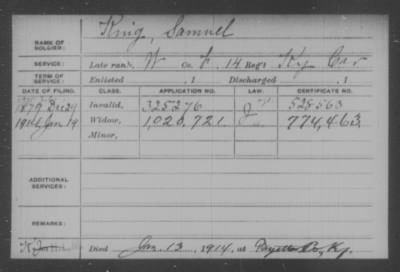 King, Samuel
NAME OF SOLDIER:
SERVICE: Late rank, Co. F, 14 Reg't Ky Cav
TERM OF SERVICE: Enlisted , 1 Discharged , 1
DATE OF FILING. CLASS. APPLICATION NO. LAW. CERTIFICATE NO.
1879 Dec 29 Invalid, 325276 525563
1914 Jan 19 Widow, 1,020,721 774,463
Minor,
ADDITIONAL SERVICES:
REMARKS:
Died Jan. 13, 1914, at Co, Ky.